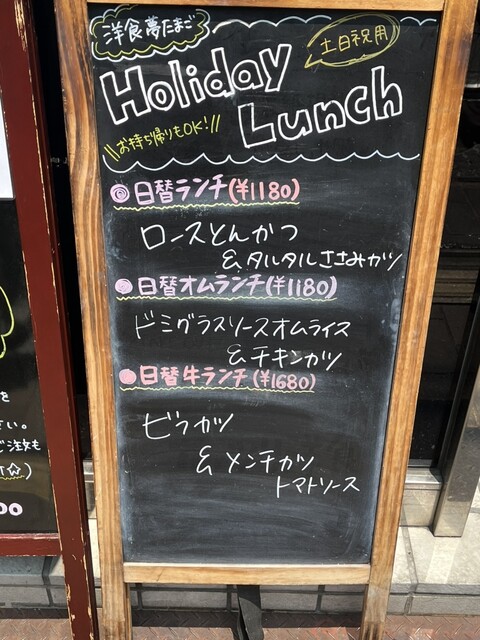 洋食夢たまご
土日祝用
Holiday
Lunch
\\お持ち帰りもOK!//
◎日替ランチ(¥1180)
ロースとんかつ
&タルタルささみカツ
◎日替オムランチ(¥1180)
ドミグラスソースオムライス
&チキンカツ
◎日替牛ランチ(¥1680)
ビフカツ
&メンチカツ
トマトソース
を
さい。
ご注文も
☆)
00